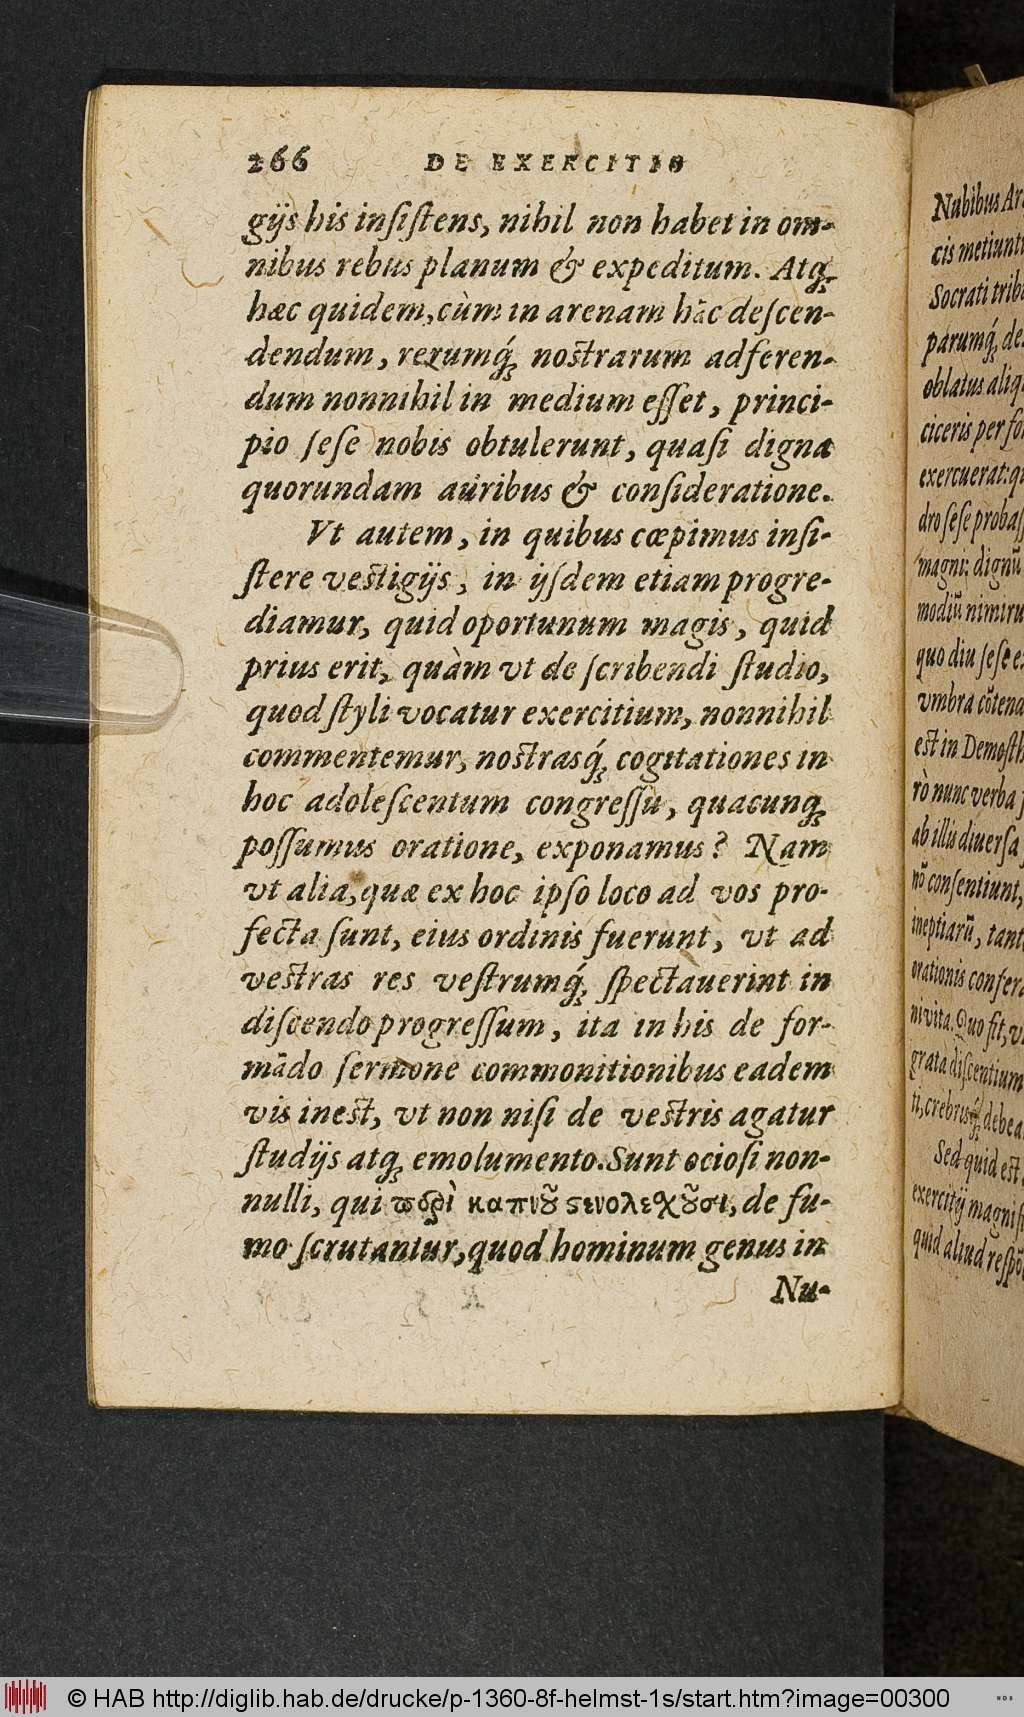 266 DE EXERCITIO
gijs his insistens, nihil non habet in om-
nibus rebus planum & expeditum. Atq́;
hæc quidem, cùm in arenam hãc descen-
dendum, rerumq́; nostrarum adferen-
dum nonnihil in medium esset, princi-
pio sese nobis obtulerunt, quasi digna
quorundam auribus & consideratione.
Vt autem, in quibus cœpimus insi-
stere vestigijs, in ijsdem etiam progre-
diamur, quid oportunum magis, quid
prius erit, quàm vt de scribendi studio,
quod styli vocatur exercitium, nonnihil
commentemur, nostrasq́; cogitationes in
hoc adolescentum congressu, quacunq;
possumus oratione, exponamus? Nam
vt alia, quæ ex hoc ipso loco ad vos pro-
fecta sunt, eius ordinis fuerunt, vt ad
vestras res vestrumq́; spectauerint in
discendo progressum, ita in his de for-
mãdo sermone commonitionibus eadem
vis inest, vt non nisi de vestris agatur
studijs atq; emolumento. Sunt ociosi non-
nulli, qui περὶ καπνοῦ στενολεχοῦσι, de fu-
mo scrutantur, quod hominum genus in
Nu-
Nubibus Ar
cis metiunt
Socrati trib
parumq́; de
oblatus aliq
ciceris per fo
exercuerat: q
dro sese probass
magni: dignũ
modiũ nimiru
quo diu sese e
vmbra cõtena
est in Demosth
rò nunc verba
ab illis diuersa
nõ consentiunt,
ineptiarũ, tant
orationis confer
ni vita. Quo fit, v
grata discentium
ti, crebrusq́; debea
Sed quid est
exercitij magnif
quid aliud respõ
© HAB http://diglib.hab.de/drucke/p-1360-8f-helmst-1s/start.htm?image=00300